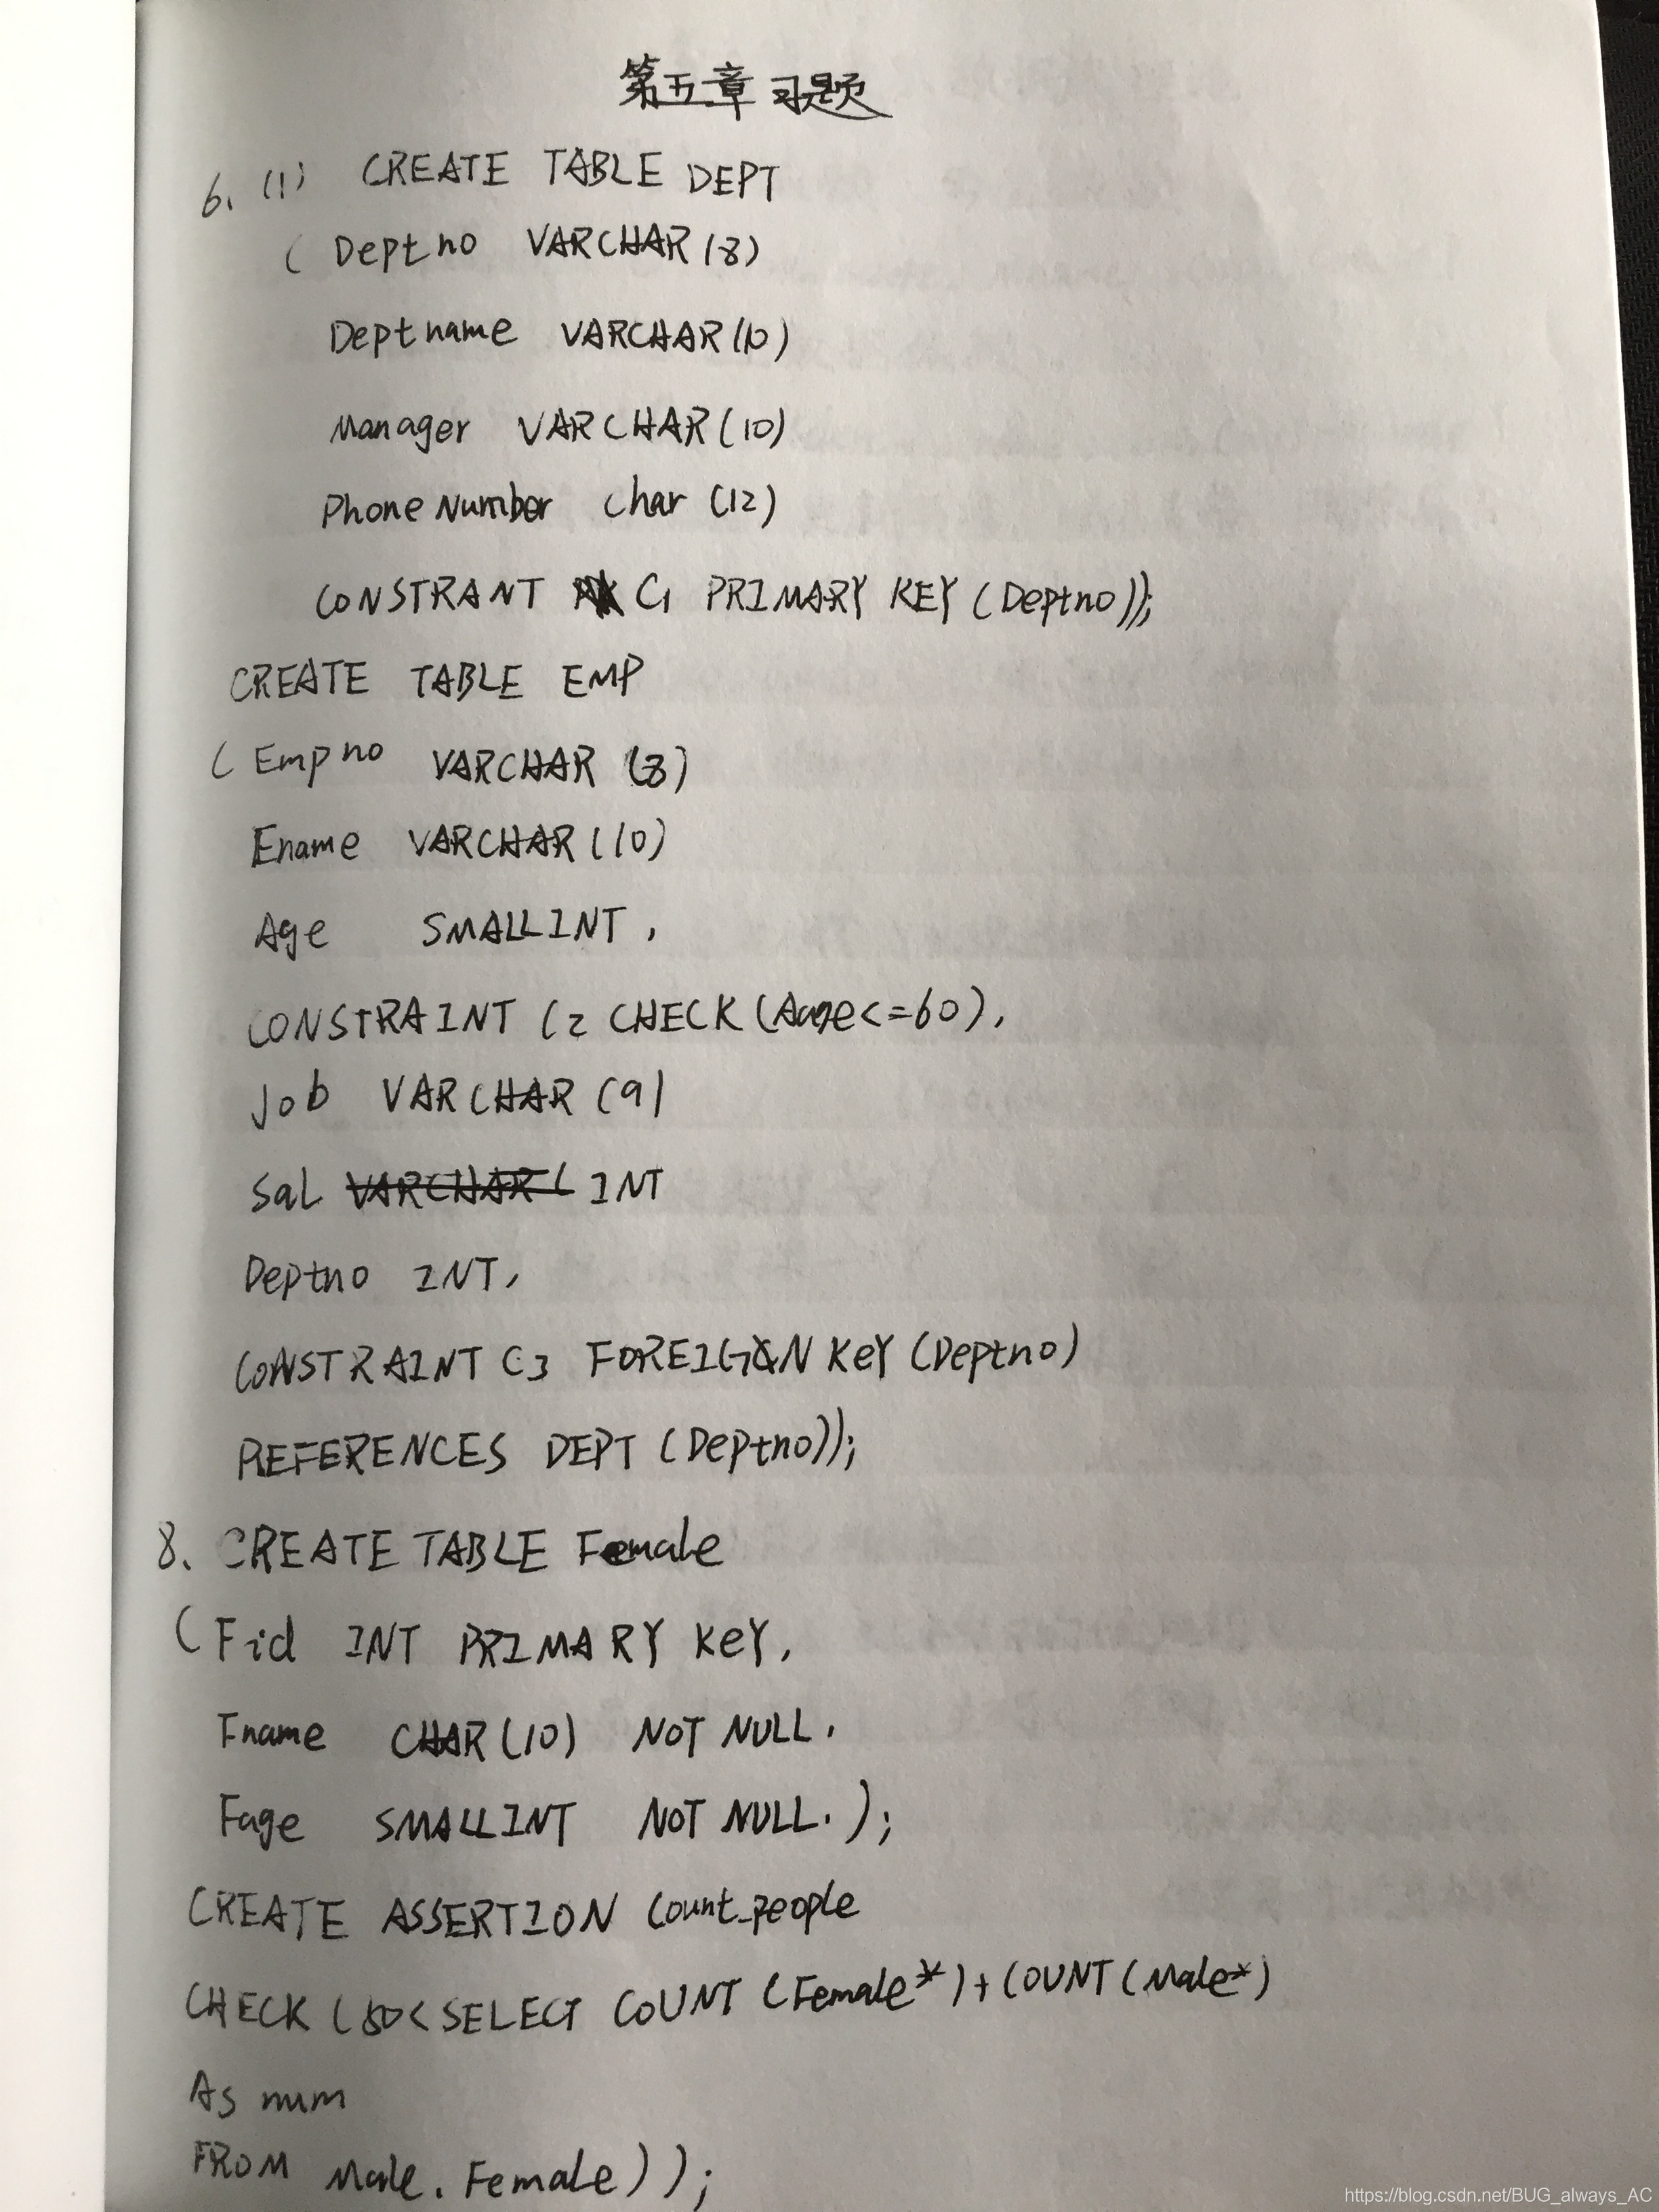 第五章 习题
6. (1) CREATE TABLE DEPT
( Deptno VARCHAR (8)
Deptname VARCHAR (10)
Manager VARCHAR (10)
PhoneNumber char (12)
CONSTRANT C1 PRIMARY KEY (Deptno));
CREATE TABLE EMP
( Empno VARCHAR (8)
Ename VARCHAR (10)
Age SMALLINT ,
CONSTRAINT C2 CHECK (Aage<=60),
Job VARCHAR (9)
Sal VARCHAR ( INT
Deptno INT,
CONSTRAINT C3 FOREIGN KEY (Deptno)
REFERENCES DEPT (Deptno));
8. CREATE TABLE Female
( Fid INT PRIMARY KEY,
Fname CHAR (10) NOT NULL,
Fage SMALLINT NOT NULL, );
CREATE ASSERTION Count_people
CHECK (50< SELECT COUNT (Female*)+COUNT (Male*)
As num
FROM Male, Female));
https://blog.csdn.net/BUG_always_AC